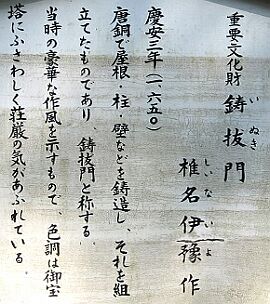 重要文化財 鋳抜門
いぬき
椎名伊豫作
しいないよ
慶安三年(一、六五〇)
唐銅で屋根・柱・壁などを鋳造し、それを組
立てたものであり、鋳抜門と称する。
当時の豪華な作風を示すもので、色調は御宝
塔にふさわしく荘厳の気があふれている。